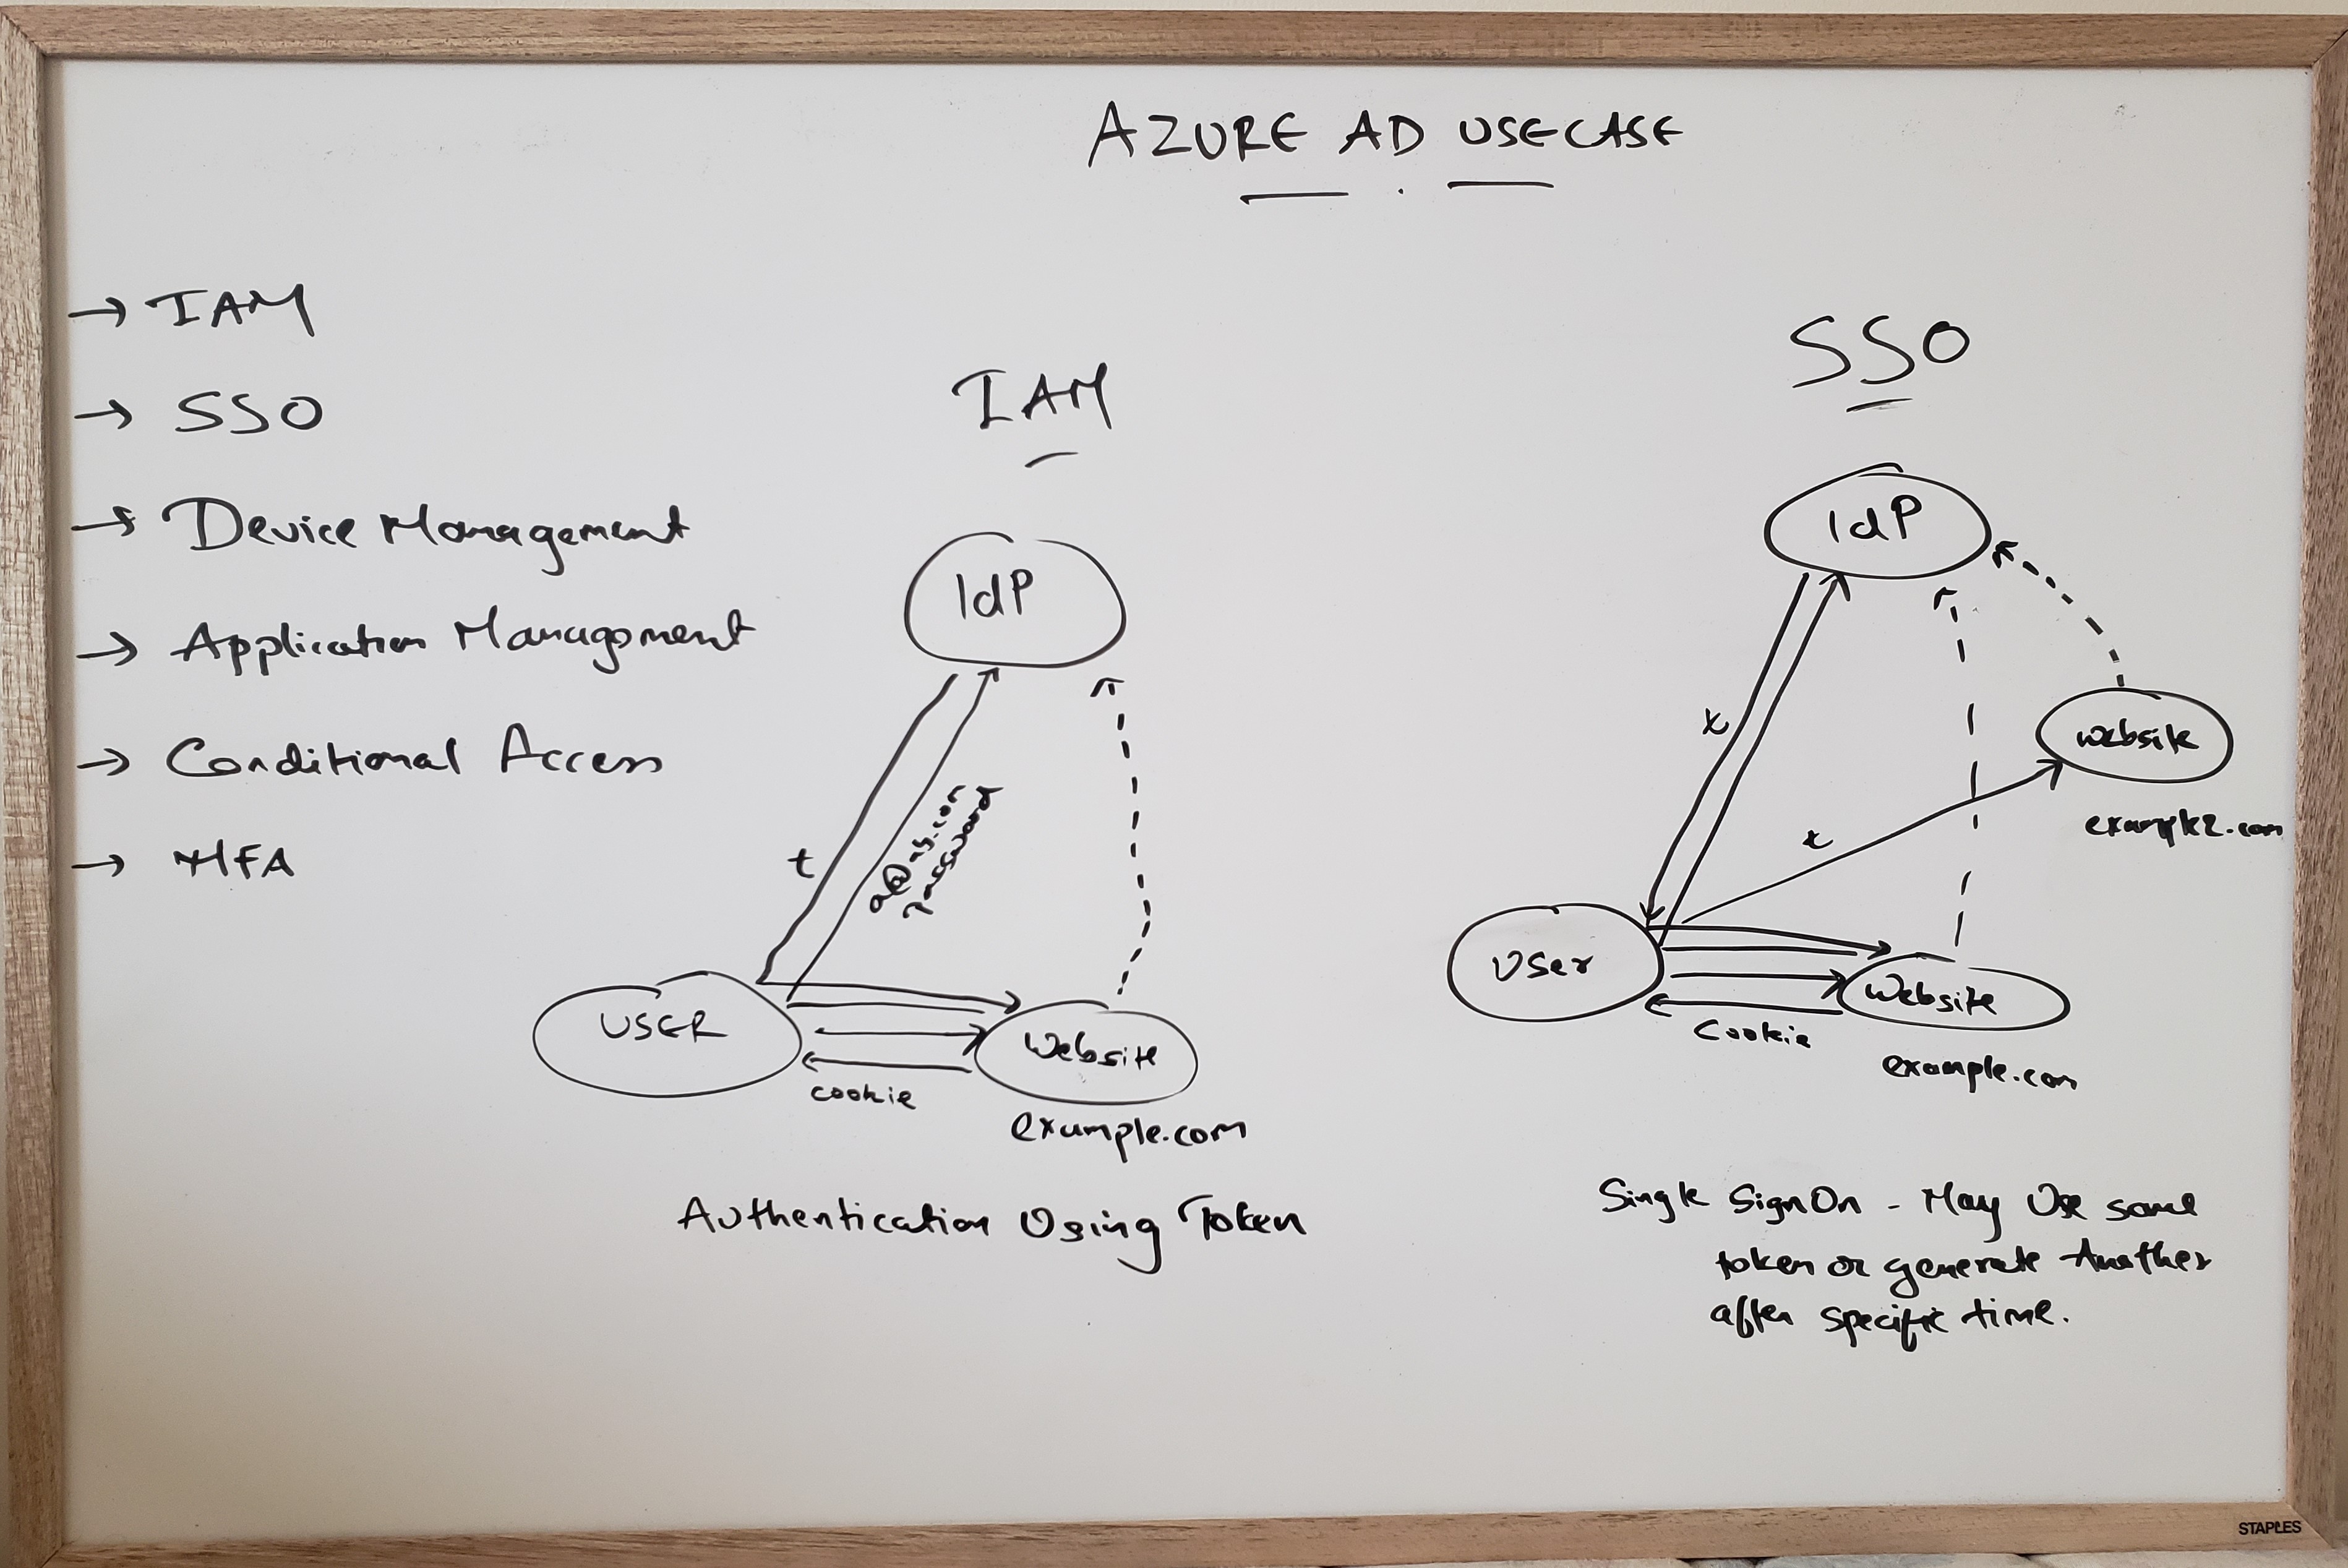 AZURE AD USECASE
→ IAM
→ SSO
→ Device Management
→ Application Management
→ Conditional Access
→ MFA
IAM
IdP
t
password
USER
Website
cookie
example.com
Authentication Using Token
SSO
IdP
t
website
example2.com
t
User
Website
Cookie
example.com
Single SignOn - May Use same
token or generate Another
after specific time.
STAPLES